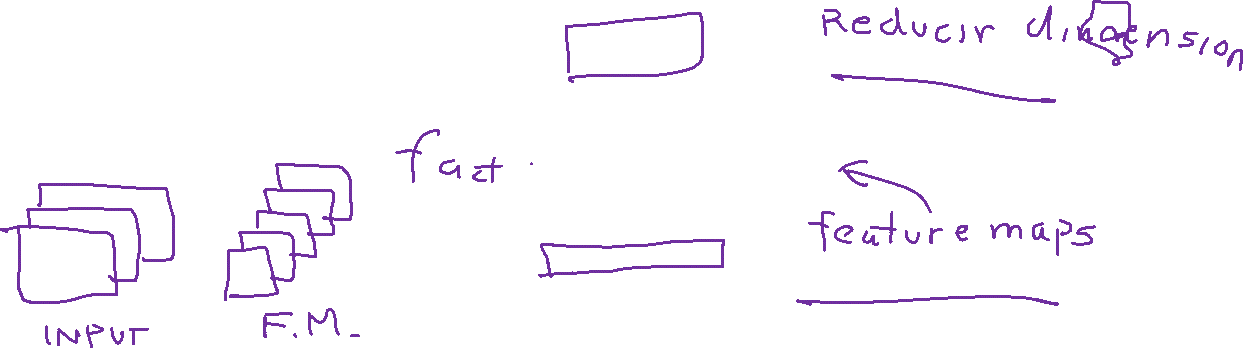 Reducir dimension
fact
feature maps
INPUT
F.M.